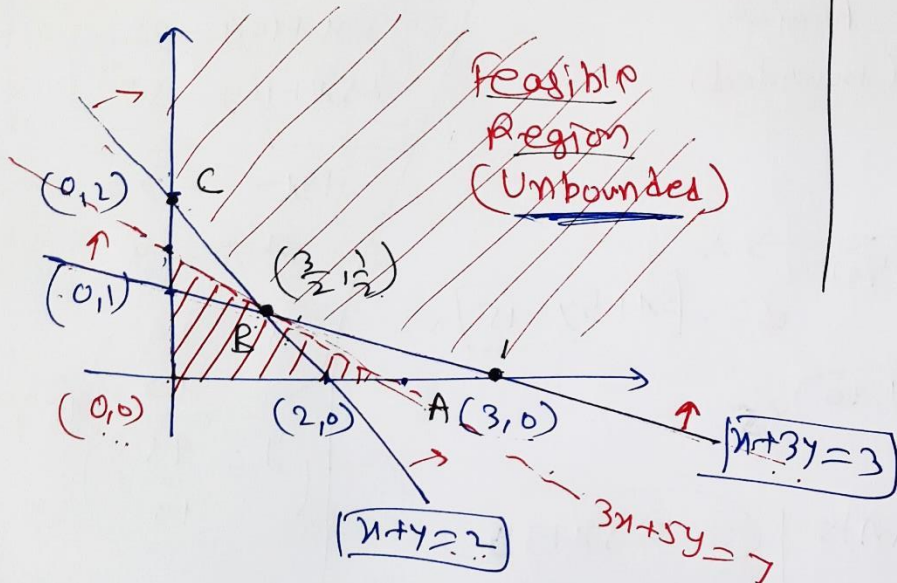 Feasible
Region
(Unbounded)
C
(0,2)
(3/2, 1/2)
(0,1)
B
A
(0,0)
(2,0)
(3,0)
x+3y=3
x+y=2
3x+5y=7